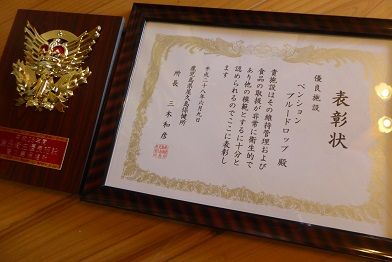 表彰状
優良施設
ペンション
ブルードロップ 殿
貴施設はその維持管理および
食品の取扱が非常に衛生的で
あり他の模範とするに十分と
認められるのでここに表彰し
ます
平成二十八年六月九日
鹿児島県屋久島保健所
所長 三木和彦